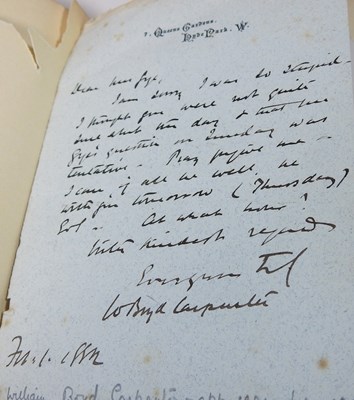 7, Queens Gardens,
Hyde Park. W.
Dear Miss Frye,
I am sorry I was so stupid.
I thought you were not quite
sure about the day & that
question on Tuesday was
tentative. Pray forgive me —
I can, if all be well, be
with you tomorrow (Thursday)
At what hour?
With kindest regards
W Boyd Carpenter
Feb. 1. 1882
William Boyd Carpenter